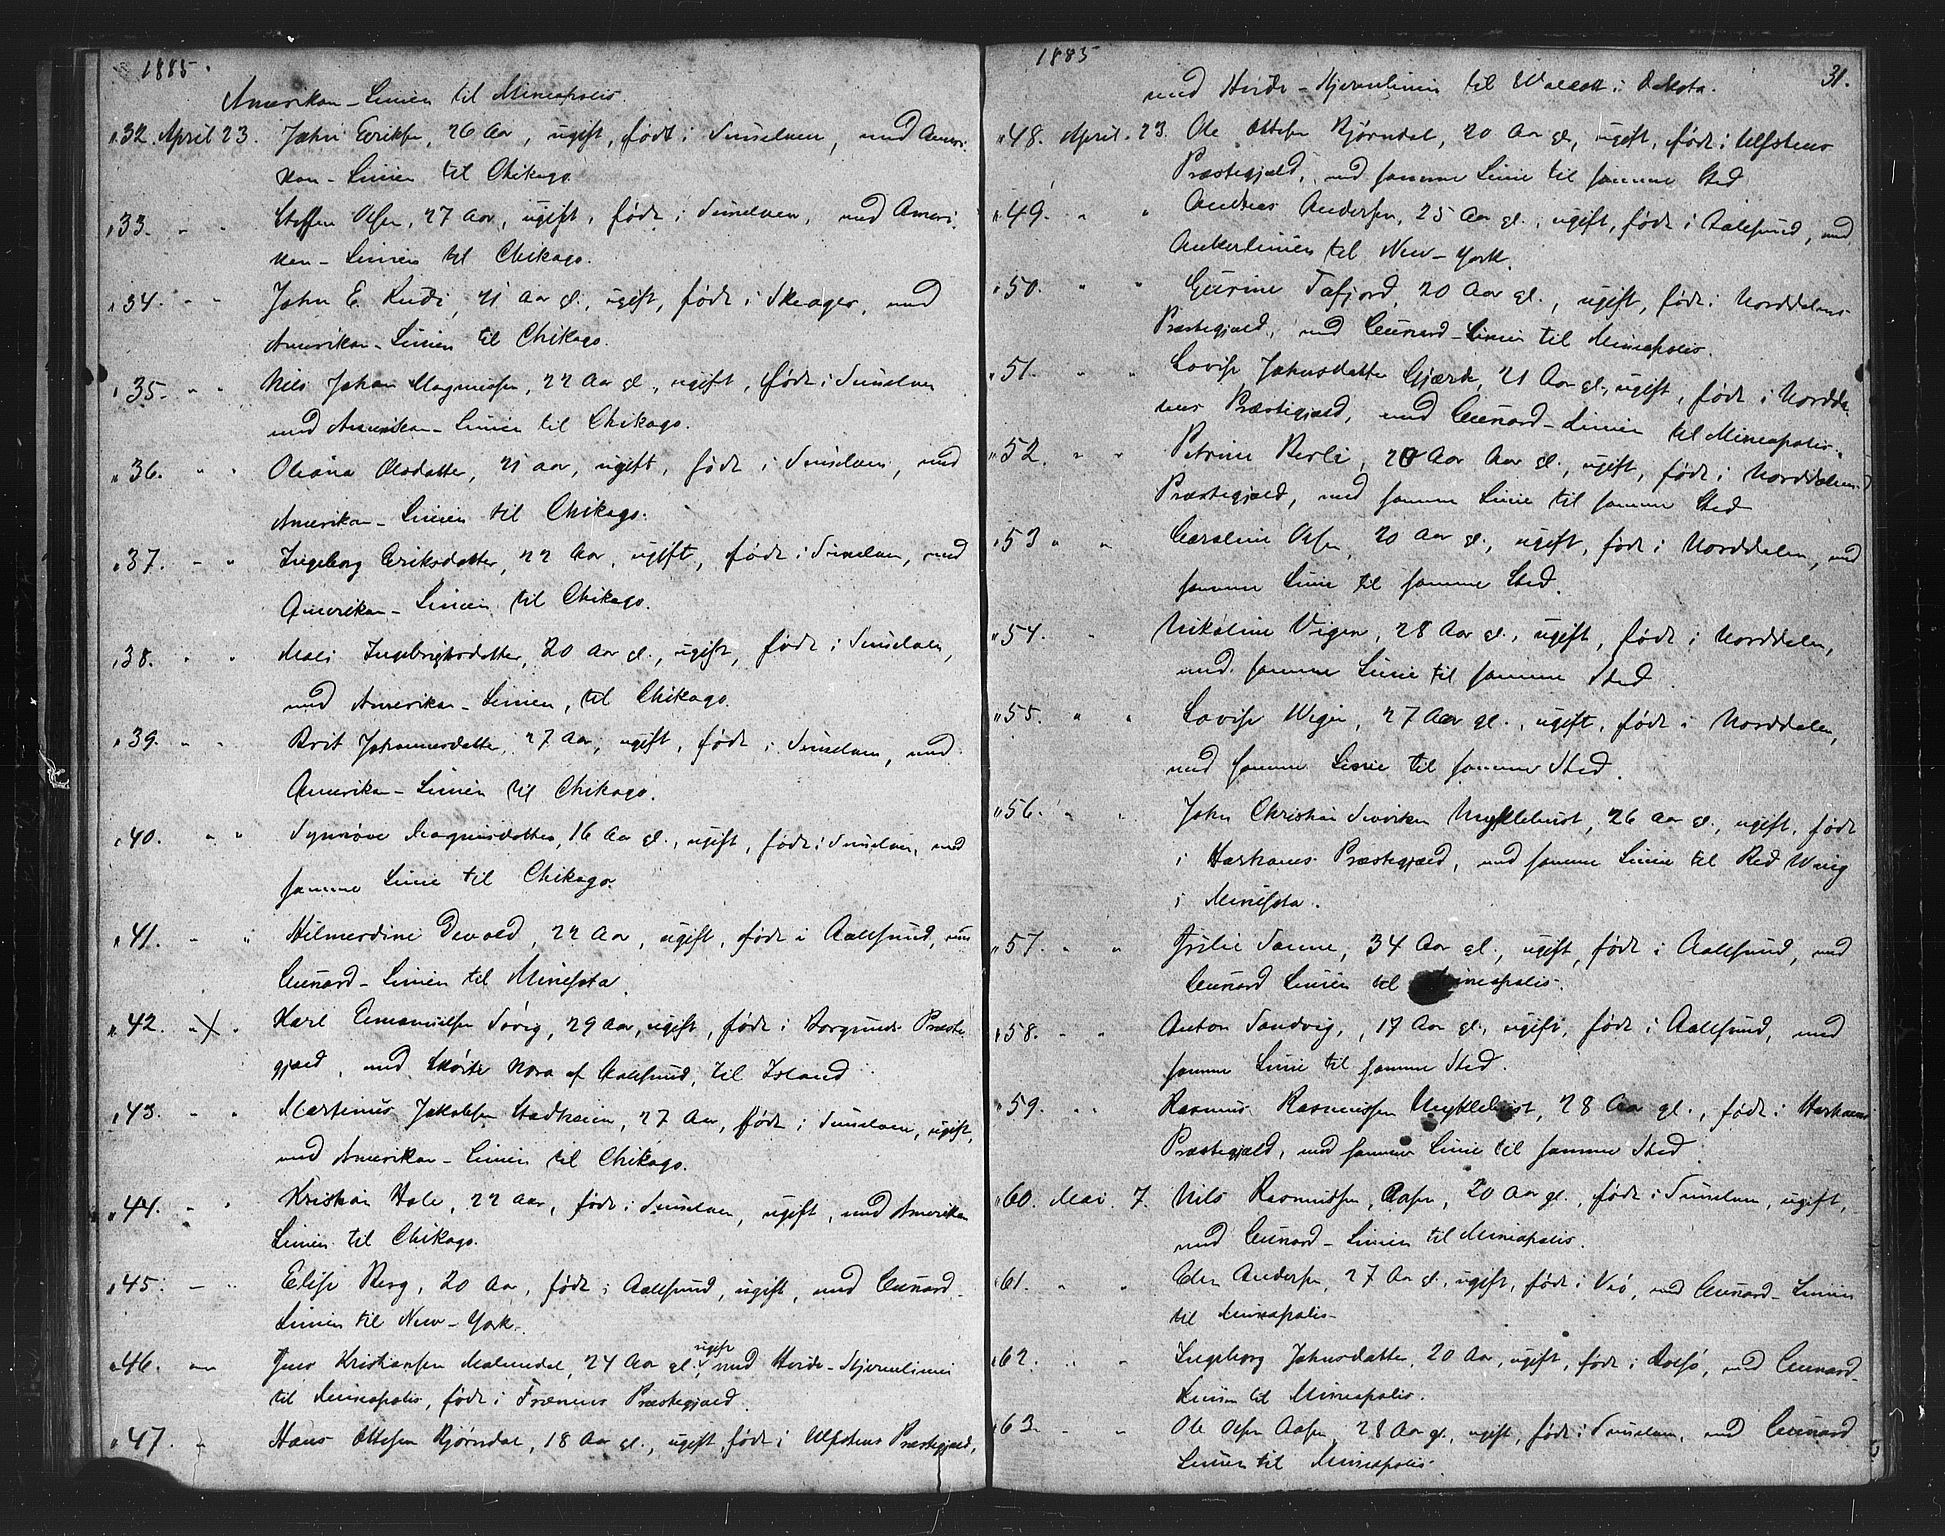 1885.
Amerikan-Linien til Mineapolis.
32. April 23. John Eriksen, 26 Aar, ugift, født i Sunelven, med Ameri-
kan-Linien til Chikago
33. " " Steffen Olsen, 27 Aar, ugift, født i Sunelven, med Ameri-
kan-Linien til Chikago.
34. " " John E. 21 Aar gl., ugift, født i med
Amerikan-Linien til Chikago.
35. " " Nils Johan Magnussen, 22 Aar gl., ugift, født i Sunelven
med Amerikan-Linien til Chikago.
36. " " Oliana Olsdatter, 21 Aar, ugift, født i Sunelven, med
Amerikan-Linien til Chikago.
37. " " Ingeborg Eriksdatter, 22 Aar, ugift, født i Sunelven, med
Amerikan-Linien til Chikago.
38. " " Mali Ingebrigtsdatter, 20 Aar gl., ugift, født i Sunelven,
med Amerikan-Linien, til Chikago.
39. " " Brit Johannesdatter, 27 Aar, ugift, født i Sunelven, med
Amerikan-Linien til Chikago.
40. " " Synnøve Magnusdatter, 16 Aar gl., ugift, født i Sunelven, med
samme Linie til Chikago.
41. " " Hilmerdine Devold, 22 Aar, ugift, født i Aalesund, med
Cunard-Linien til Minesota.
42. " " Karl Emanuelsen Søvig, 29 Aar, ugift, født i Borgunds Præste-
gjæld, med Skøite Nora af Aalesund, til Island
43. " " Martinus Jakobsen Stadheim, 27 Aar, født i Sunelven, ugift,
med Amerikan-Linien til Chikago.
44. " " Kristian Hole, 22 Aar, født i Sunelven, ugift, med Amerikan
Linien til Chikago.
45. " " Elise Berg, 20 Aar, født i Aalesund, ugift, med Cunard-
Linien til New-York.
46. Jens Kristiansen Malmedal, 24 Aar gl., ugift med Hvide-Stjernelinien
til Mineapolis, født i Frænens Præstegjæld.
47. " Hans Ottesen Bjørndal, 18 Aar gl., ugift, født i Ulfstens Præstegjæld,
1885
31.
med Hvide-Stjernelinien til Walcott i Dakota.
48. April. 23. Ole Ottesen Bjørndal, 20 Aar gl., ugift, født i Ulfstens
Præstegjæld, med samme Linie til samme Sted
49. " " Andreas Andersen, 25 Aar gl., ugift, født i Aalesund, med
Ankerlinien til New-York.
50. " " Gurine Tafjord, 20 Aar gl., ugift, født i Norddalens
Præstegjæld, med Cunard-Linien til Mineapolis.
51. " " Lovise Johnsdatter Gjærde, 21 Aar gl., ugift, født i Nordda-
lens Præstegjæld, med Cunard-Linien til Mineapolis.
52. " " Petrine Berli, 20 Aar Aar gl., ugift, født i Norddalens
Præstegjæld, med samme Linie til samme Sted
53 " " Caroline Olsen, 20 Aar gl., ugift, født i Norddalen, med
samme Linie til samme Sted.
54. " Nikoline Vigen, 28 Aar gl., ugift, født i Norddalen,
med samme Linie til samme Sted.
55. " " Lovise Vigen, 27 Aar gl., ugift, født i Norddalen,
med samme Linie til samme Sted.
56. " " John Christian Myklebust, 26 Aar gl., ugift, født
i Harhams Præstegjæld, med samme Linie til Red Wing
i Minesota.
57. " " Julie Sanne, 34 Aar gl., ugift, født i Aalesund, med
Cunard Linien til Mineapolis.
58. " " Anton Sandvig, 17 Aar gl., ugift, født i Aalesund, med
samme Linie til samme Sted.
59. " " Rasmus Rasmussen Myklebust, 28 Aar gl., født i Harhams
Præstegjæld, med samme Linie til samme Sted
60. Mai. 7. Nils Rasmussen Aasen, 20 Aar gl., født i Sunelven, ugift,
med Cunard-Linien til Mineapolis.
61. " " Andersen, 27 Aar gl., ugift, født i Veø, med Cunard-Linien
til Mineapolis-
62. " " Ingeborg Johnsdatter, 20 Aar, ugift, født i Bolsø, med Cunard-
Linien til Mineapolis.
63. " " Ole Olsen Aasen, 28 Aar gl., ugift, født i Sunelven, med Cunard
Linien til Mineapolis.